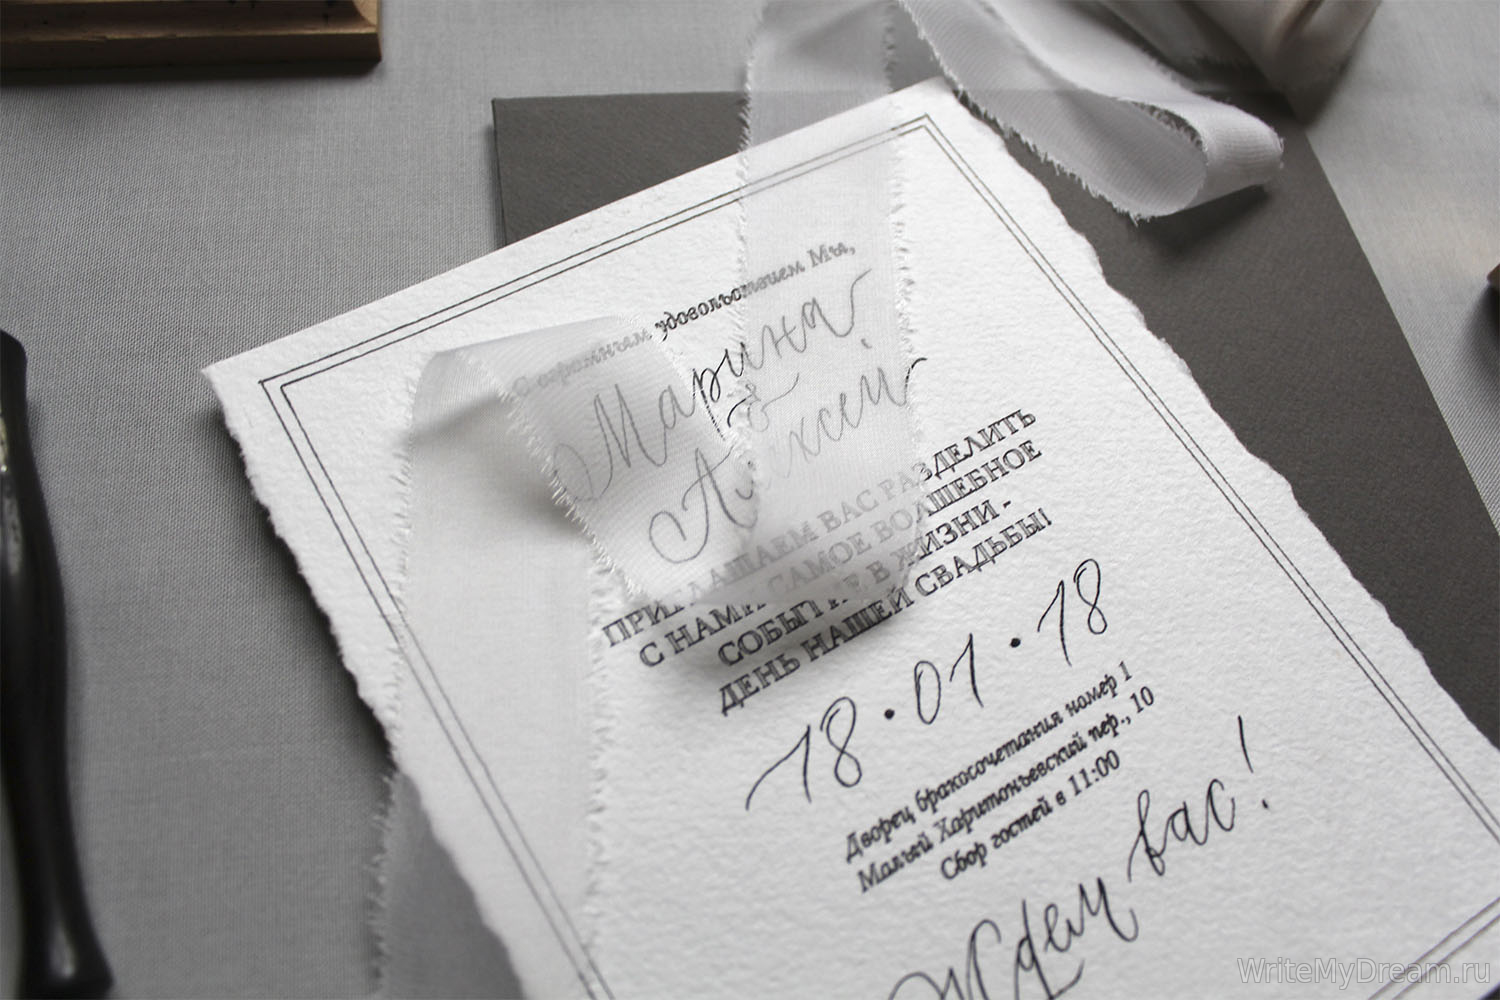 С огромным удовольствием Мы,
Марина
&
Алексей
ПРИГЛАШАЕМ ВАС РАЗДЕЛИТЬ
С НАМИ САМОЕ ВОЛШЕБНОЕ
СОБЫТИЕ В ЖИЗНИ -
ДЕНЬ НАШЕЙ СВАДЬБЫ!
18•01•18
Дворец бракосочетания номер 1
Малый Харитоньевский пер., 10
Сбор гостей в 11:00
Ждем вас!
WriteMyDream.ru